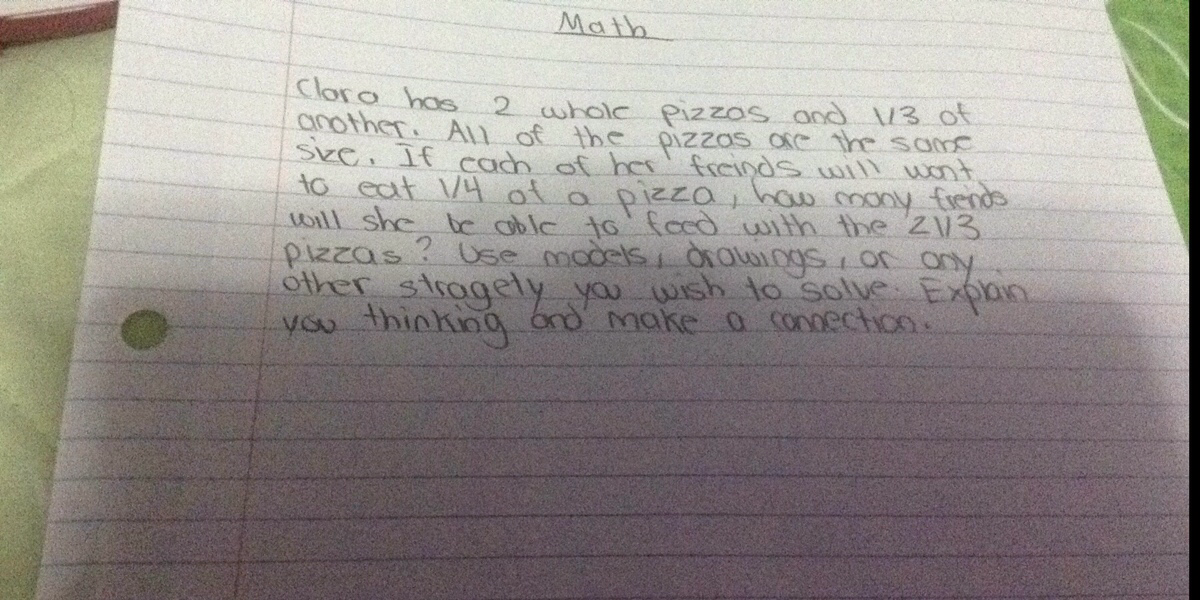 Math
Clara has 2 whole pizzas and 1/3 of
another. All of the pizzas are the same
size. If each of her freinds will want
to eat 1/4 of a pizza, how many freinds
will she be able to feed with the 2 1/3
pizzas? Use models, drawings, or any
other stragety you wish to solve. Explain
you thinking and make a connection.